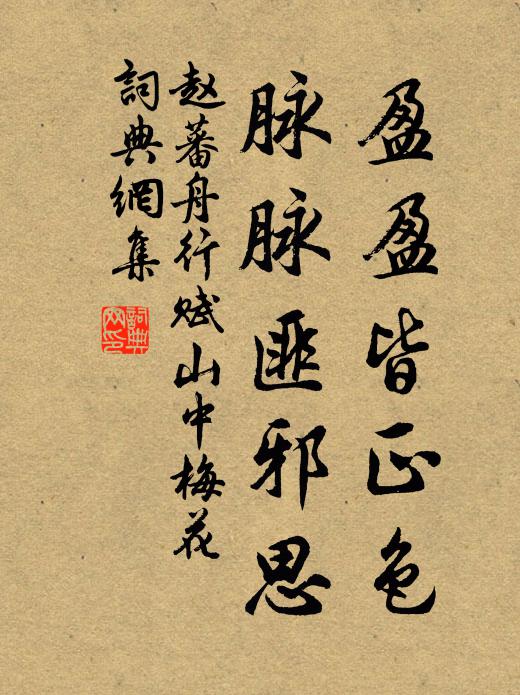 盈盈皆正色
脉脉匪邪思
赵蕃舟行赋山中梅花
词典網集
詞典
网印